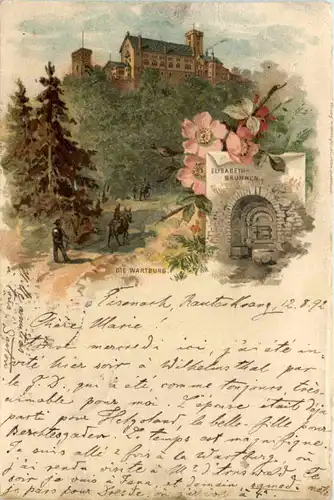 ELISABETH-
BRUNNEN
DIE WARTBURG
Eisenach, 12.8.92
Chère Marie!
mercredi ici j'ai été in-
vité hier soir à Wilhelmsthal par
le G.D. qui a été comme toujours très
aimable pour moi. L'épouse était déjà
partie pour Helgoland, la belle-fille pour
Berchtesgaden. Le temps est magnifique
Je suis allé 2 fois à la Wartburg où
j'ai rendu visite à Mr d'Arnswald. Je
suis à Jena et demain, samedi
je pars pour